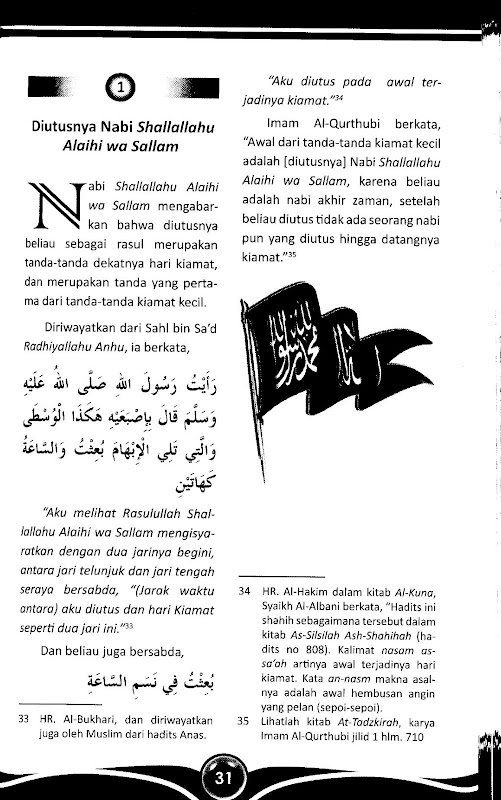 1
Diutusnya Nabi Shallallahu
Alaihi wa Sallam
Nabi Shallallahu Alaihi
wa Sallam mengabar-
kan bahwa diutusnya
beliau sebagai rasul merupakan
tanda-tanda dekatnya hari kiamat,
dan merupakan tanda yang perta-
ma dari tanda-tanda kiamat kecil.
Diriwayatkan dari Sahl bin Sa’d
Radhiyallahu Anhu, ia berkata,
رَأَيْتُ رَسُولَ اللهِ صَلَّى اللهُ عَلَيْهِ
وَسَلَّمَ قَالَ بِإِصْبَعَيْهِ هَكَذَا الْوُسْطَى
وَالَّتِي تَلِي الْإِبْهَامَ بُعِثْتُ وَالسَّاعَةُ
كَهَاتَيْنِ
“Aku melihat Rasulullah Shal-
lallahu Alaihi wa Sallam mengisya-
ratkan dengan dua jarinya begini,
antara jari telunjuk dan jari tengah
seraya bersabda, “(Jarak waktu
antara) aku diutus dan hari Kiamat
seperti dua jari ini.”33
Dan beliau juga bersabda,
بُعِثْتُ فِي نَسَمِ السَّاعَةِ
33 HR. Al-Bukhari, dan diriwayatkan
juga oleh Muslim dari hadits Anas.
“Aku diutus pada awal ter-
jadinya kiamat.”34
Imam Al-Qurthubi berkata,
“Awal dari tanda-tanda kiamat kecil
adalah [diutusnya] Nabi Shallallahu
Alaihi wa Sallam, karena beliau
adalah nabi akhir zaman, setelah
beliau diutus tidak ada seorang nabi
pun yang diutus hingga datangnya
kiamat.”35
34 HR. Al-Hakim dalam kitab Al-Kuna,
Syaikh Al-Albani berkata, “Hadits ini
shahih sebagaimana tersebut dalam
kitab As-Silsilah Ash-Shahihah (ha-
dits no 808). Kalimat nasam as-
sa’ah artinya awal terjadinya hari
kiamat. Kata an-nasm makna asal-
nya adalah awal hembusan angin
yang pelan (sepoi-sepoi).
35 Lihatlah kitab At-Tadzkirah, karya
Imam Al-Qurthubi jilid 1 hlm. 710
31